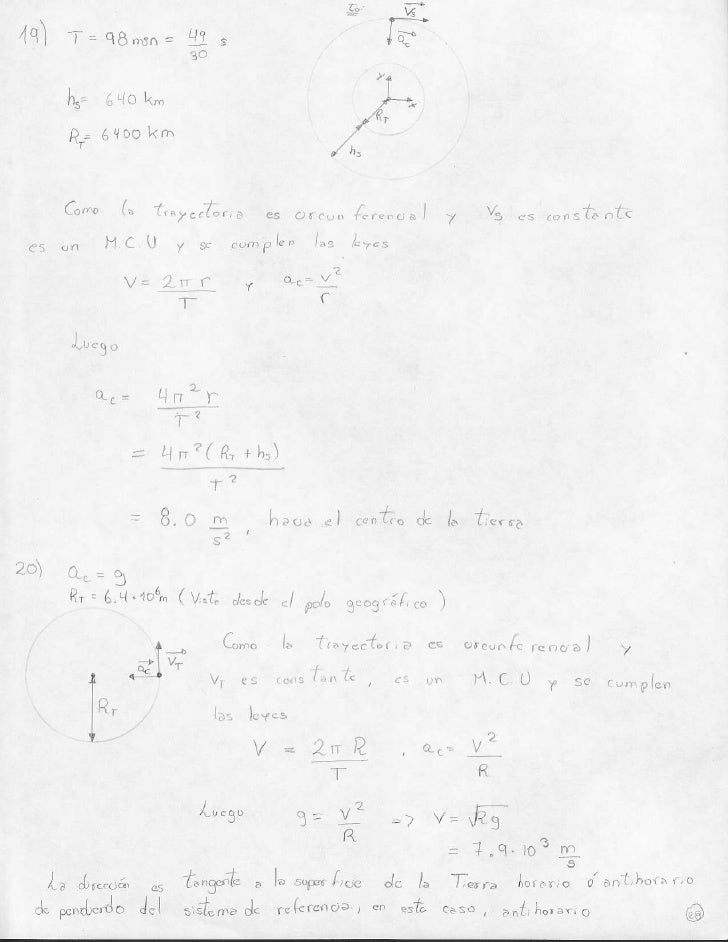 to:
Vs
19) T = 98 min = 49/30 s
ac
hs= 640 km
y
x
RT
RT= 6400 km
hs
Como la trayectoria es circunferencial y Vs es constante
es un M.C.U y se cumplen las leyes
V = 2πr/T y ac = v²/r
Luego
ac = 4π²r/T²
= 4π²(RT + hs)/T²
= 8.0 m/s², hacia el centro de la tierra
20) ac = g
RT = 6.4·10⁶m (Visto desde el polo geográfico)
Como la trayectoria es circunferencial y
ac VT
VT es constante, es un M.C.U y se cumplen
RT
las leyes
V = 2πR/T , ac = V²/R
Luego g = V²/R => V = √Rg
= 7.9·10³ m/s
La dirección es tangente a la superficie de la Tierra horario ó antihorario
de penderdo del sistema de referencia, en este caso, antihorario
28